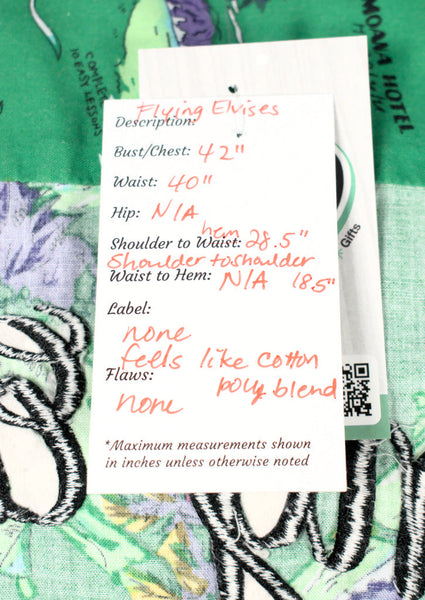 MOANA HOTEL
COMPLETE
10 EASY LESSONS
Flying Elvises
Description:
Bust/Chest: 42"
Waist: 40"
Hip: N/A
hem
Shoulder to Waist: 28.5"
Shoulder to shoulder
Waist to Hem: N/A 18.5"
Label:
none
feels like cotton
poly blend
Flaws:
none
*Maximum measurements shown
in inches unless otherwise noted
Gifts